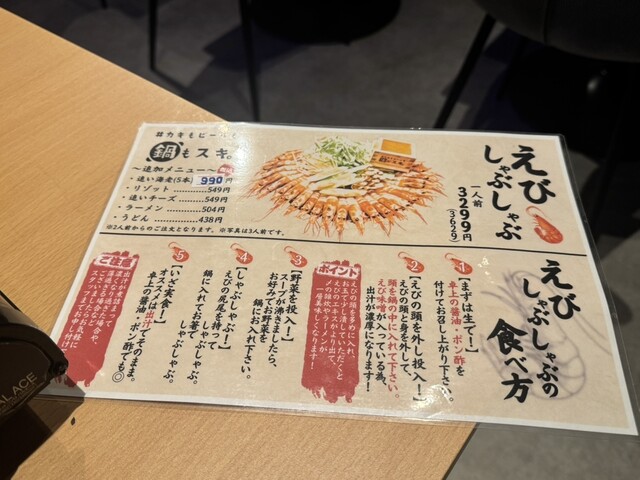 えび
しゃぶしゃぶ
二人前
3299円
(3629)
#カキもビールも
鍋もスキ。
〜追加メニュー〜
・追い海老(5本) 990円
・リゾット…………549円
・追いチーズ………549円
・ラーメン…………504円
・うどん……………438円
※2人前からのご注文となります。※写真は3人前です。
えび
しゃぶしゃぶの
食べ方
1
【まずは生で!】
卓上の醤油・ポン酢を
付けてお召し上がり下さい。
2
【えびの頭を外し投入!】
えびの頭と身を外して、
頭を鍋の中に入れて下さい。
えび味噌が入っている為、
出汁が濃厚になります!
ポイント
えびの頭を多めに入れ、
お玉で少し潰していただくと
えびのエキスがより出て、
〆の雑炊やラーメンが
一層美味しくなります!
3
【野菜を投入!】
スープが沸きましたら、
お好みでお野菜を
鍋にお入れ下さい。
4
【しゃぶしゃぶ!】
えびの尻尾を持って
鍋に入れてお箸で
しゃぶしゃぶ。
5
【いざ実食!】
オススメは出汁でそのまま。
卓上の醤油・ポン酢でも◎
ご注意
出汁が煮詰まって
スタッフまでお気軽に
お申し付け
ALACE